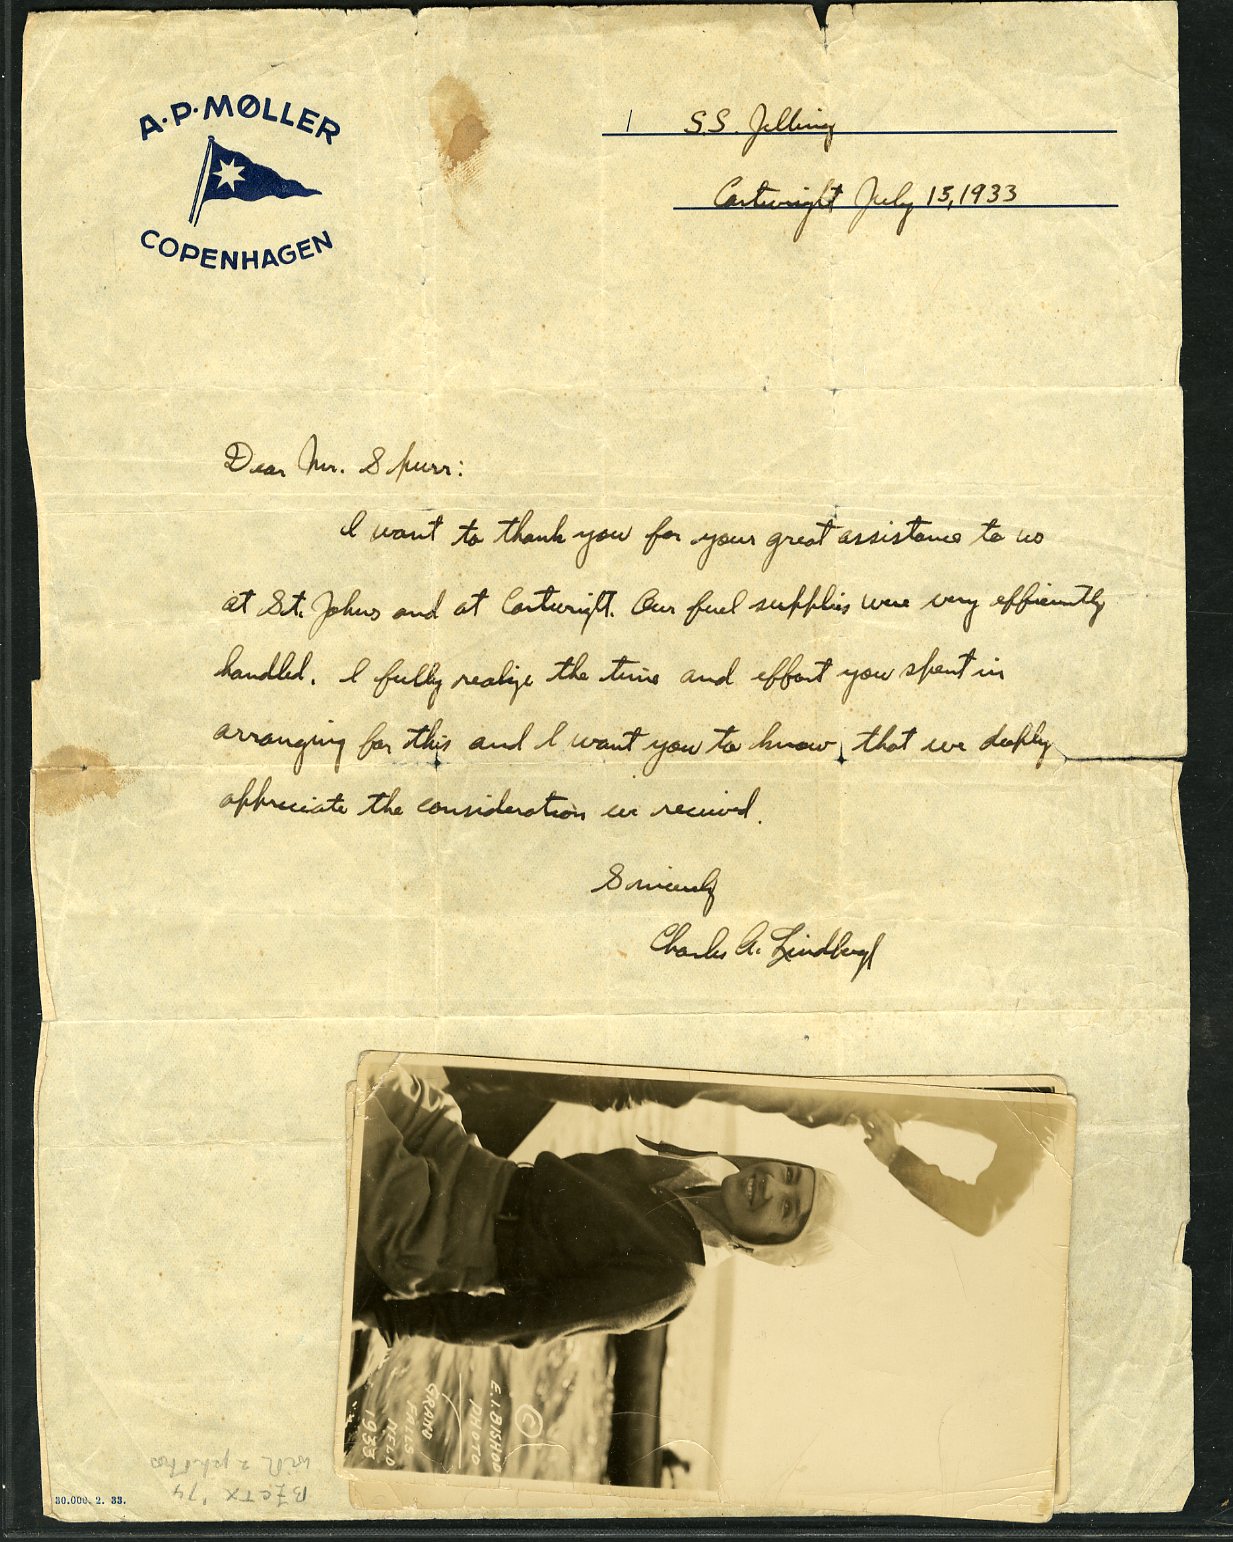 A·P·MØLLER
COPENHAGEN
S.S. Jelling
Cartwright July 15, 1933
Dear Mr. Spurr:
I want to thank you for your great assistance to us
at St. Johns and at Cartwright. Our fuel supplies were very efficiently
handled. I fully realize the time and effort you spent in
arranging for this and I want you to know that we deeply
appreciate the consideration we received.
Sincerely
Charles A. Lindbergh
©
E. I. BISHOP
PHOTO
GRAND
FALLS
NFLD
1933
with 2 photos
30.000. 2. 33.